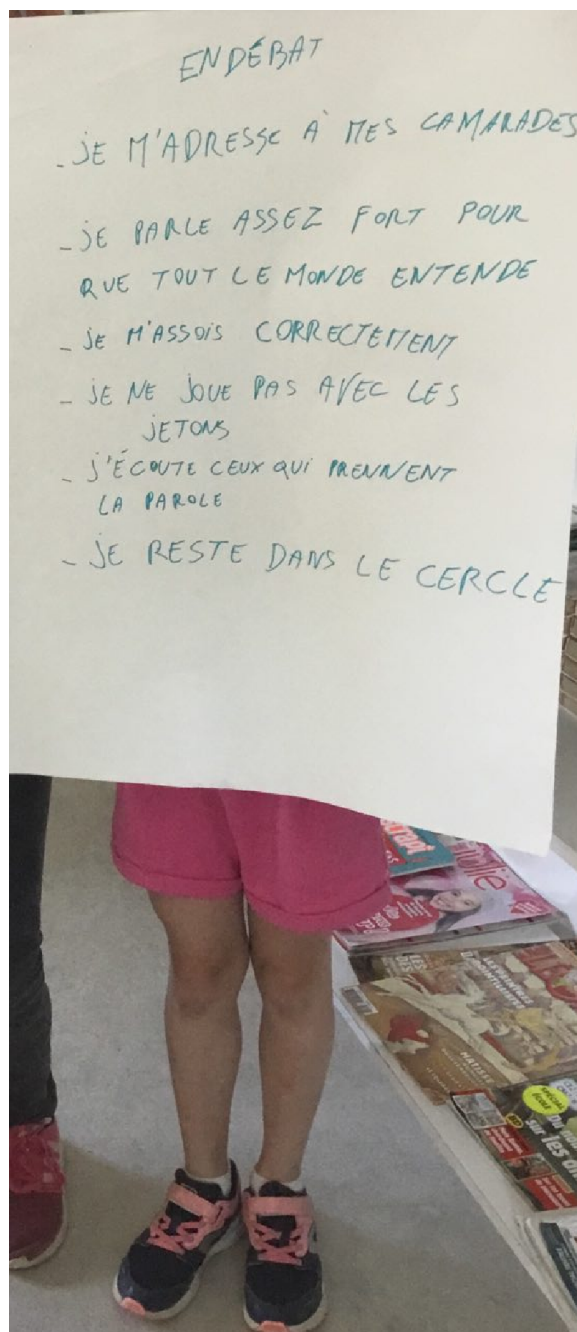 EN DÉBAT
- JE M'ADRESSE À MES CAMARADES
- JE PARLE ASSEZ FORT POUR
QUE TOUT LE MONDE ENTENDE
- JE M'ASSOIS CORRECTEMENT
- JE NE JOUE PAS AVEC LES
JETONS
- J'ÉCOUTE CEUX QUI PRENNENT
LA PAROLE
- JE RESTE DANS LE CERCLE
MATISSE
SPÉCIAL
ÉCOLE
sur les